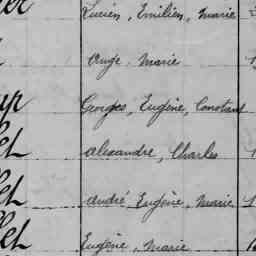 Lucien, Emilien, Marie
Ange Marie
Georges, Eugène, Constant
Alexandre, Charles
André, Eugène, Marie
Eugène, Marie